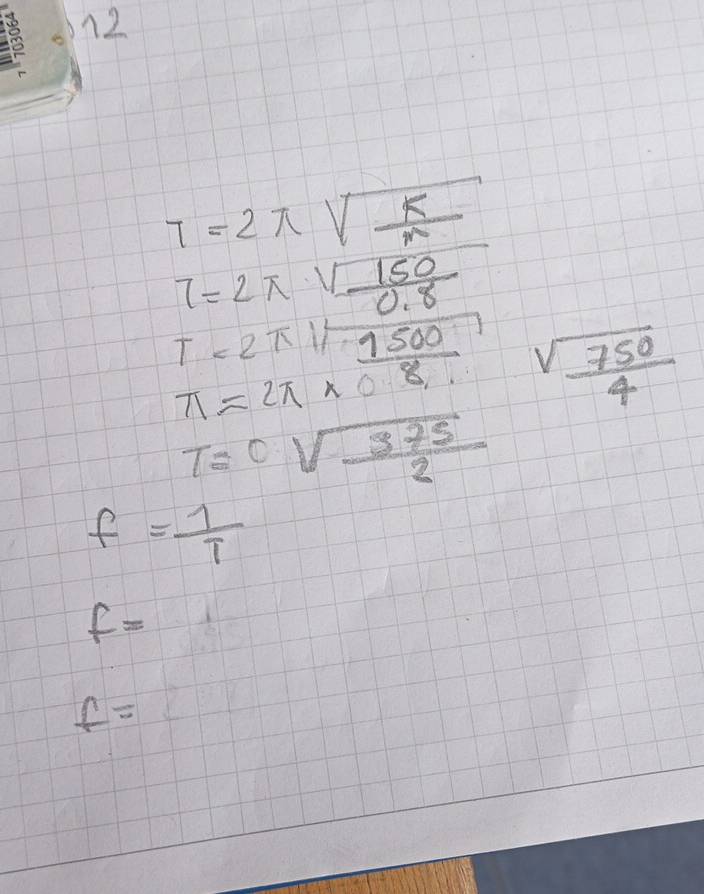 7 703064
12
T = 2 π √ K / m
T = 2 π √ 150 / 0.8
T = 2 π √ 1500 / 8
π = 2π × 0
√ 750 / 4
T = 0 √ 375 / 2
f = 1 / T
f =
f =